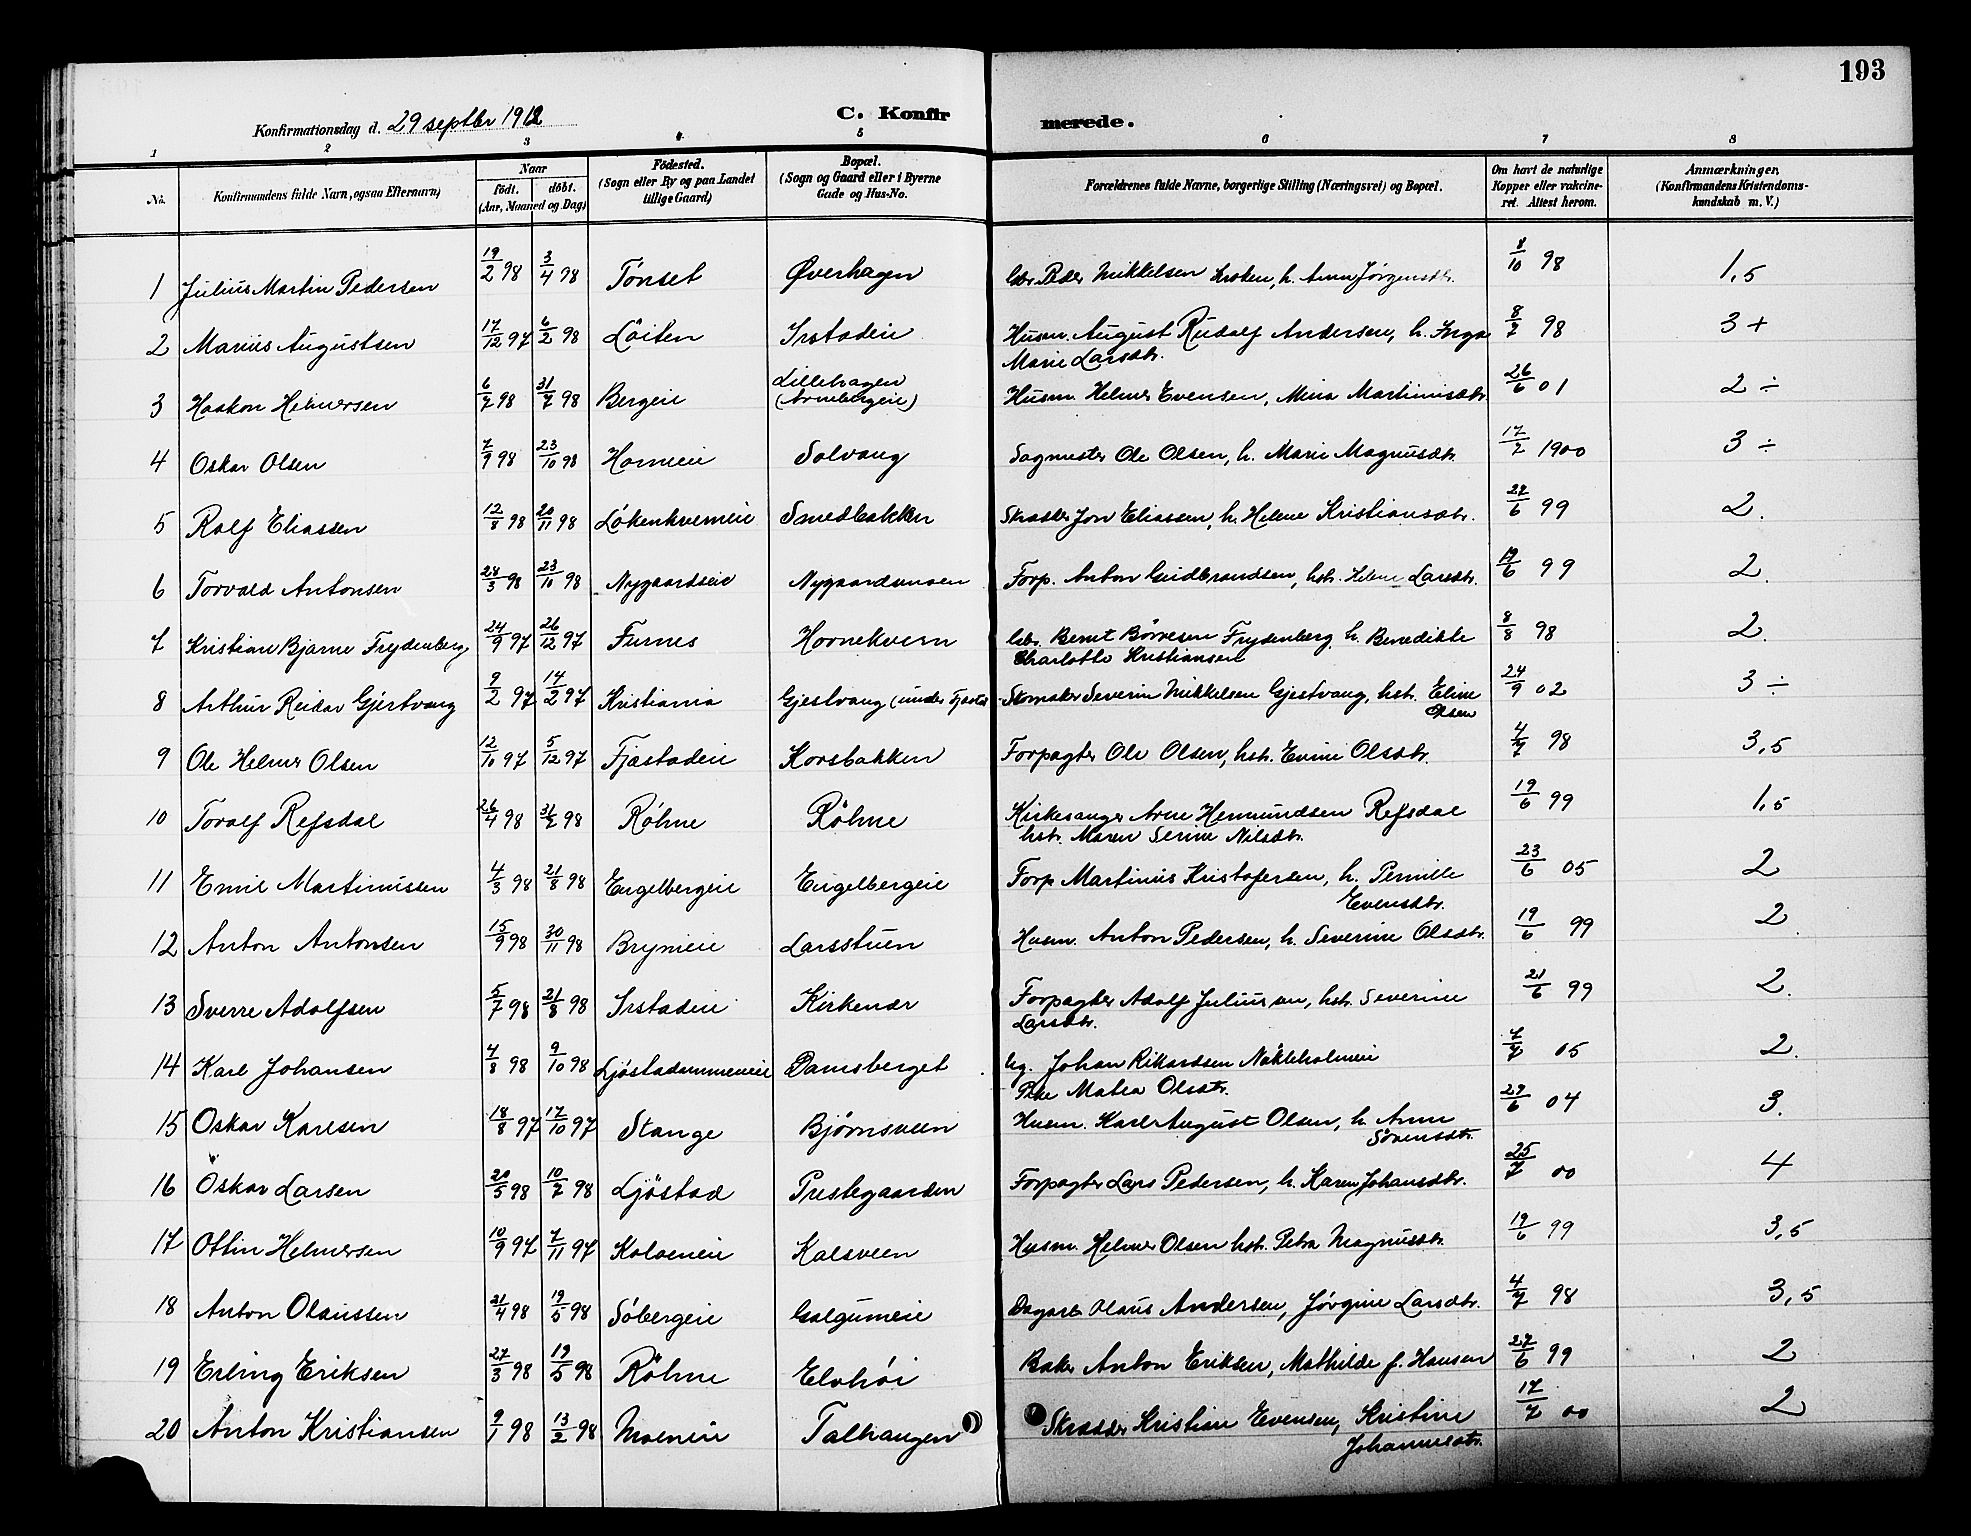 193
Konfirmationsdag d. 29 septbr 1912
C. Konfirmerede.
1 2 3 4 5 6 7 8
No. Konfirmandens fulde Navn, ogsaa Efternavn) Naar födt. döbt. (Aar, Maaned og Dag) Födested. (Sogn eller By og paa Landet tillige Gaard) Bopæl. (Sogn og Gaard eller i Byerne Gade og Hus-No. Forældrenes fulde Navne, borgerlige Stilling (Næringsvei) og Bopæl. Om havt de naturlige Kopper eller vakcineret. Attest herom. Anmærkninger, (Konfirmandens Kristendomskundskab m. V.)
1 Julius Martin Pedersen 19/2 98 3/4 98 Tönset Øverhagen Peder Mikkelsen Kroken, h. Anne Jörgensdtr. 8/10 98 1,5
2 Marius Augustsen 17/12 97 6/2 98 Löiten Irstadeie Husm. August Rudolf Andersen, h. Inga 8/7 98 3+
Marie Larsdtr.
3 Haakon Helmersen 6/7 98 31/7 98 Bergeie Lillehagen (Arnebergeie) Husm. Helmer Evensen, Mina Martinusdtr. 26/6 01 2 ÷
4 Oskar Olsen 7/9 98 23/10 98 Horneeie Solvang Sagmester Ole Olsen, h. Marie Magnusdtr. 17/2 1900 3 ÷
5 Rolf Eliassen 12/8 98 20/11 98 Lökenkverneie Smedbakken Skrædder Jon Eliassen, h. Helene Kristiansdtr. 27/6 99 2.
6 Torvald Antonsen 28/3 98 23/10 98 Nygaardseie Nygaardsmoen Forp. Anton Gudbrandsen, hstr. Helene Larsdtr. 19/6 99 2.
7 Kristian Bjarne Frydenberg 24/9 97 26/12 97 Furnes Hornekvern Bernt Börresen Frydenberg, h. Benedikte 8/8 98 2.
Charlotte Kristiansen
8 Arthur Reidar Gjestvang 9/2 97 14/2 97 Kristiania Gjestvang (under Fjæstad Skomaker Severin Mikkelsen Gjestvang, hstr. Eline 24/9 02 3 ÷
Olsen
9 Ole Helmer Olsen 12/10 97 5/12 97 Fjæstadeie Korsbakken Forpagter Ole Olsen, hstr. Evine Olsdtr. 4/7 98 3,5
10 Toralf Refsdal 26/4 98 31/7 98 Röhne Röhne Kirkesanger Arne Hermundsen Refsdal 19/6 99 1,5
hstr. Maren Serine Nilsdtr.
11 Emil Martinussen 4/3 98 21/8 98 Engelbergeie Engelbergeie Forp Martinius Kristofersen, h. Pernille 23/6 05 2
Evensdtr.
12 Anton Antonsen 15/9 98 30/11 98 Bryneie Larsstuen Husm. Anton Pedersen, h. Severine Olsdtr. 19/6 99 2.
13 Sverre Adolfsen 5/7 98 21/8 98 Irstadeie Kirkenær Forpagter Adolf Juliussen, hstr. Severine 21/6 99 2.
Larsdtr.
14 Karl Johansen 4/8 98 9/10 98 Damsberget Ug. Johan Rikardsen 7/7 05 2.
Pike Matea Olsdtr.
15 Oskar Karlsen 18/8 97 17/10 97 Stange Björnsveen Husm. Karl August Olsen, h. Anne 27/6 04 3.
Sörensdtr.
16 Oskar Larsen 20/5 98 10/7 98 Ljöstad Prestegaarden Forpagter Lars Pedersen, h. Karen Johansdtr. 25/7 00 4
17 Ottin Helmersen 10/9 97 7/11 97 Kalsveen Husm. Helmer Olsen hstr. Petra Magnusdtr. 19/6 99 3,5
18 Anton Olaussen 21/4 98 19/5 98 Söbergeie Galgumeie Dagarb Olaus Andersen, Jörgine Larsdtr. 4/7 98 3,5
19 Erling Eriksen 27/3 98 19/5 98 Röhne Elvhöi Baker Anton Eriksen, Mathilde f. Hansen 27/6 99 2
20 Anton Kristiansen 9/1 98 13/2 98 Moeneie Talhaugen Skrædder Kristian Evensen, Kristine 17/7 00 2
Johannesdtr.